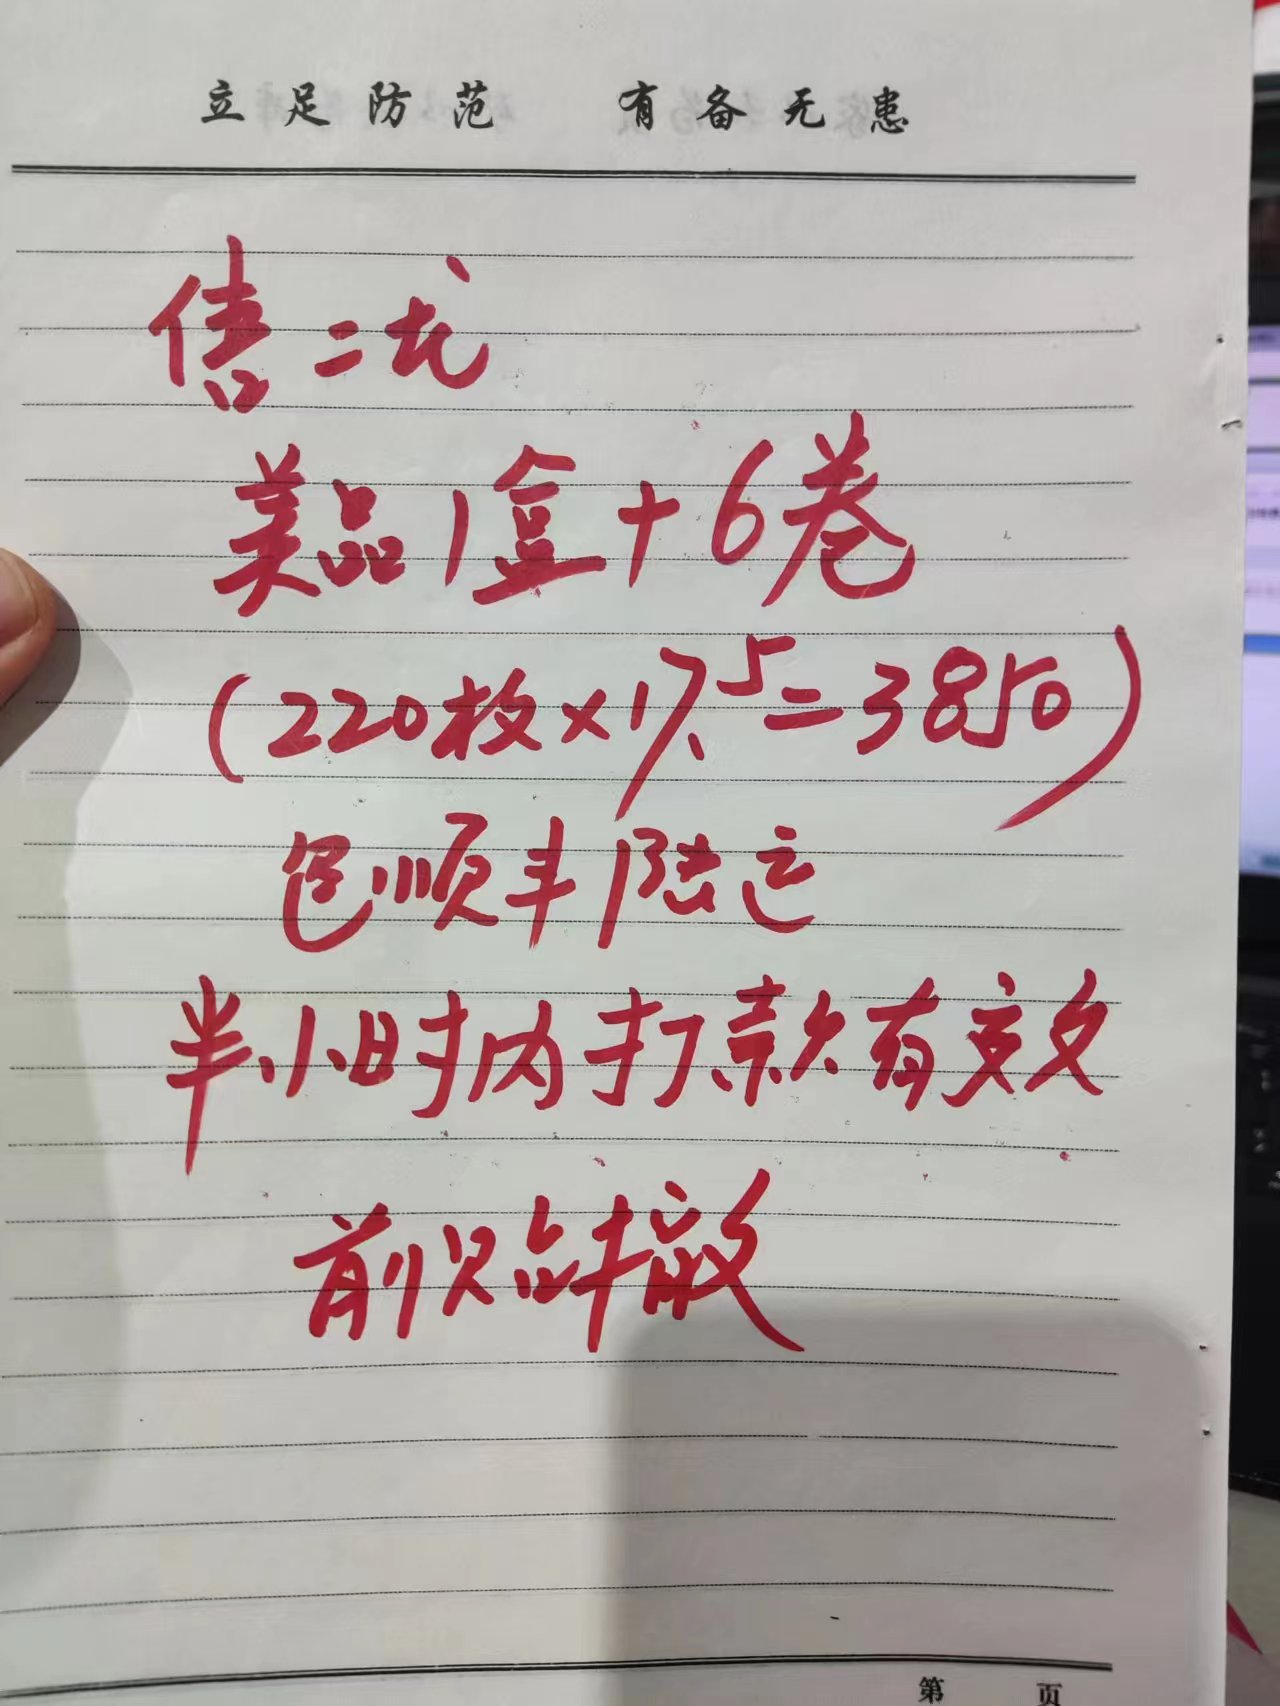 立足防范 有备无患
售二龙
美品1盒+6卷
(220枚×17.5=3850)
包顺丰陆运
半小时内打款有效
前贴撤
第 页